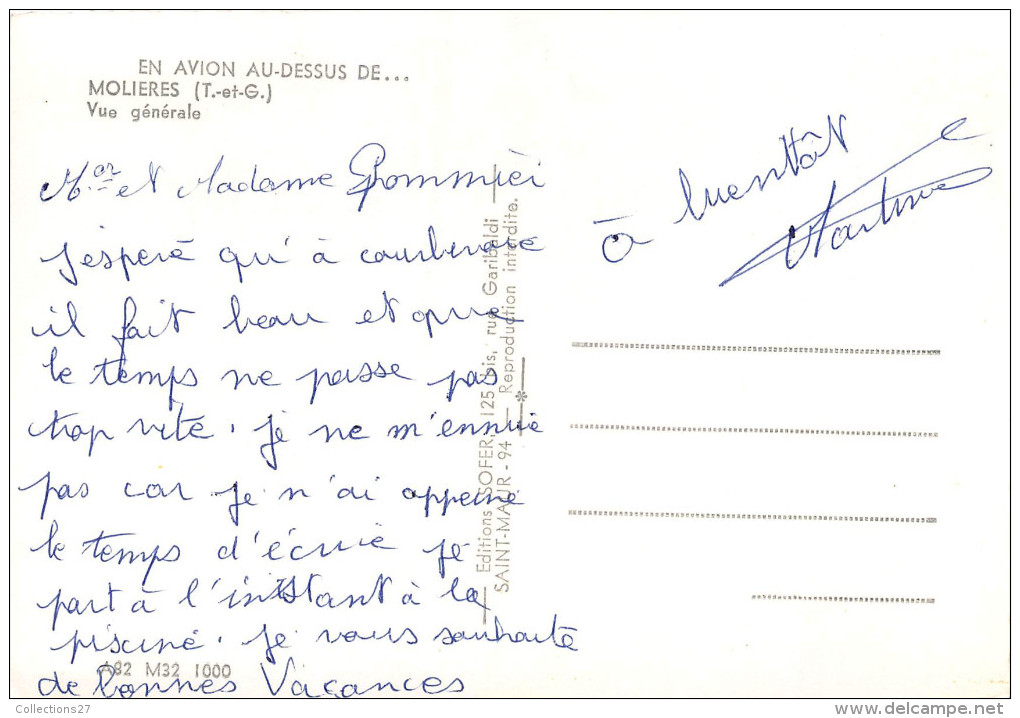 EN AVION AU-DESSUS DE...
MOLIERES (T.-et-G.)
Vue générale
Mer et Madame Pommiéi
J'esperé qu'à courbevoie
il fait beau et que
le temps ne passe pas
trop vite. je ne m'ennuie
pas car je n'ai appeine
le temps d'écrire je
part à l'instant à la
piscine. je vous souhaite
de bonnes Vacances
à bientôt
Martine
Editions SOFER, 125 bis, rue Garibaldi
SAINT-MAUR - 94 — Reproduction interdite.
A82 M32 1000
Collections27
www.delcampe.net